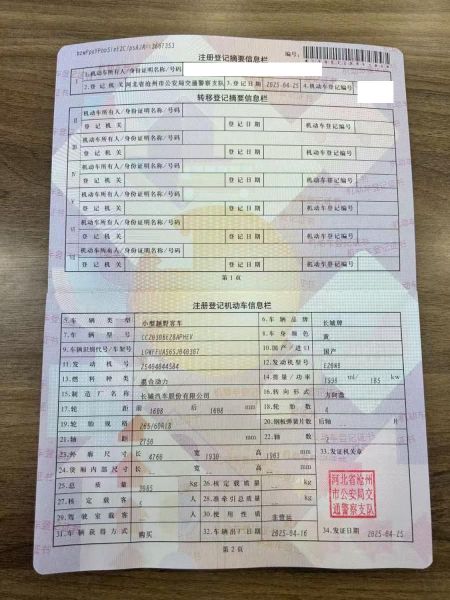 注册登记摘要信息栏
编号:
I
1.机动车所有人/身份证明名称/号码
2.登记机关 河北省沧州市公安局交通警察支队 3.登记日期 2025-04-25 4.机动车登记编号
转移登记摘要信息栏
II 机动车所有人/身份证明名称/号码
登记机关 登记日期 机动车登记编号
III 机动车所有人/身份证明名称/号码
登记机关 登记日期 机动车登记编号
IV 机动车所有人/身份证明名称/号码
登记机关 登记日期 机动车登记编号
V 机动车所有人/身份证明名称/号码
登记机关 登记日期 机动车登记编号
VI 机动车所有人/身份证明名称/号码
登记机关 登记日期 机动车登记编号
VII 机动车所有人/身份证明名称/号码
登记机关 登记日期 机动车登记编号
第1页
注册登记机动车信息栏
5.车辆类型 小型越野客车 6.车辆品牌 长城牌
7.车辆型号 8.车身颜色 黄
9.车辆识别代号/车架号 10.国产/进口 国产
11.发动机号 12.发动机型号 E20NB
13.燃料种类 混合动力 14.排量/功率 1998 ml 185 kw
15.制造厂名称 长城汽车股份有限公司 16.转向形式 方向盘
17.轮距 前 1608 后 1608 mm 18.轮胎数 4
19.轮胎规格 265/60R18 20.钢板弹簧片数 后轴 -- 片
21.轴距 2750 mm 22.轴数 2
23.外廓尺寸 长 4760 宽 1930 高 1903 mm 33.发证机关章
24.货厢内部尺寸 长 宽 高 mm
25.总质量 kg 26.核定载质量 kg
27.核定载客 人 28.准牵引总质量 kg
29.驾驶室载客 人 30.使用性质 非营运
31.车辆获得方式 购买 32.车辆出厂日期 2025-04-16 34.发证日期 2025-04-25
河北省沧
州市公安局交
通警察支队
第2页